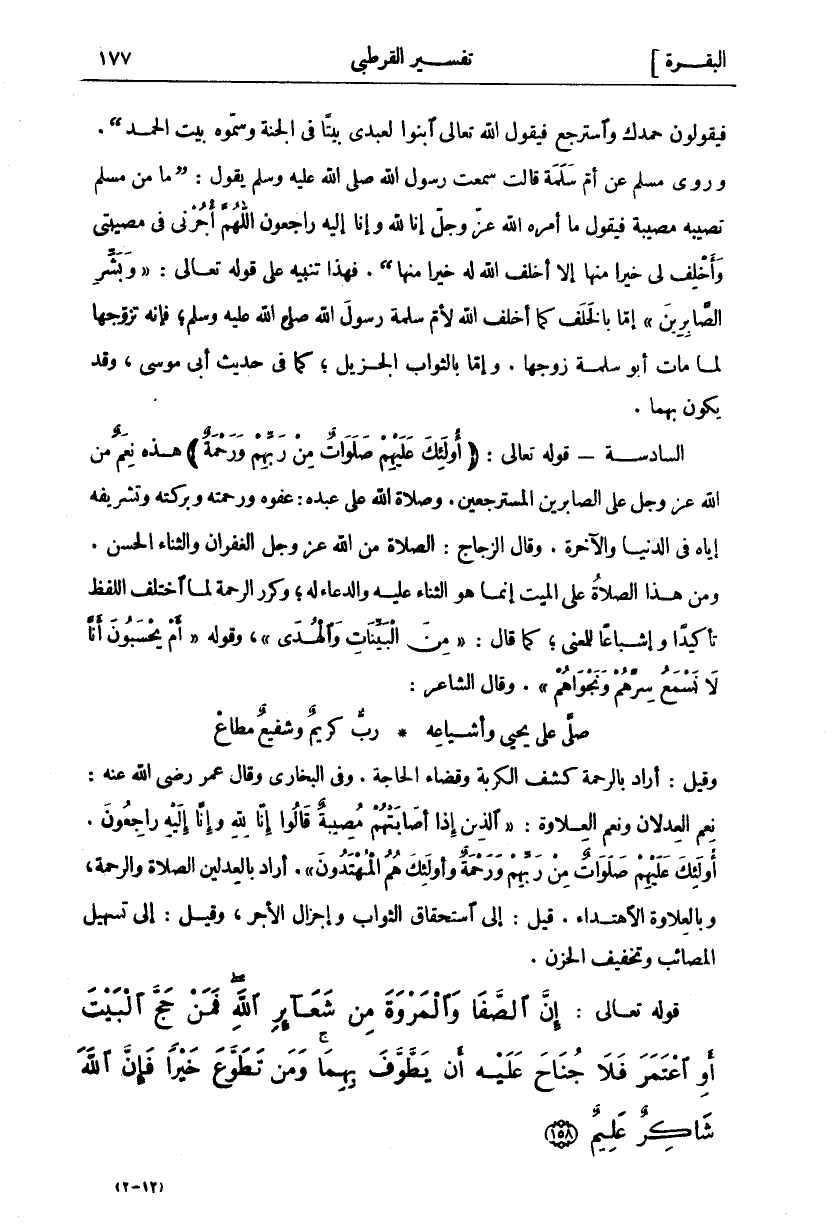 البقرة ] تفسير القرطبى ١٧٧
فيقولون حمدك وٱسترجع فيقول الله تعالى ٱبنوا لعبدى بيتًا فى الجنة وسمّوه بيت الحمد“ .
وروى مسلم عن أمّ سَلَمَة قالت سمعت رسول الله صلى الله عليه وسلم يقول : ”ما من مسلم
تصيبه مصيبة فيقول ما أمره الله عزّ وجلّ إنا لله وإنا إليه راجعون اللّٰهُمَّ أْجُرْنى فى مصيبتى
وَأَخْلِف لى خيرا منها إلا أخلف الله له خيرا منها“ . فهذا تنبيه على قوله تعالى : « وَبَشِّرِ
الصَّابِرِينَ » إمّا بالخَلَف كما أخلف الله لأمّ سلمة رسولَ الله صلى الله عليه وسلم؛ فإنه تزوّجها
لما مات أبو سلمة زوجها . وإمّا بالثواب الجزيل ؛ كما فى حديث أبى موسى ، وقد
يكون بهما .
السادسة — قوله تعالى : ﴿ أُولَئِكَ عَلَيْهِمْ صَلَوَاتٌ مِنْ رَبِّهِمْ وَرَحْمَةٌ ﴾ هذه نِعَمٌ من
الله عز وجل على الصابرين المسترجعين. وصلاة الله على عبده: عفوه ورحمته وبركته وتشريفه
إياه فى الدنيا والآخرة . وقال الزجاج : الصلاة من الله عز وجل الغفران والثناء الحسن .
ومن هذا الصلاةُ على الميت إنما هو الثناء عليه والدعاء له؛ وكرر الرحمة لما ٱختلف اللفظ
تأكيدًا وإشباعًا للعنى ؛ كما قال : « مِنَ الْبَيِّنَاتِ وَٱلْهُدَى »، وقوله « أَمْ يَحْسَبُونَ أَنَّا
لَا نَسْمَعُ سِرَّهُمْ وَنَجْوَاهُمْ » . وقال الشاعر :
صلَّى على يحيى وأشياعه * ربٌّ كريمٌ وشفيعٌ مطاعْ
وقيل : أراد بالرحمة كشف الكربة وقضاء الحاجة . وفى البخارى وقال عمر رضى الله عنه :
نِعم العِدلان ونعم العِلاوة : « ٱلذين إذا أصَابَتْهُمْ مُصِيبةٌ قَالُوا إنَّا لِلهِ وإنَّا إِلَيْهِ راجعُونَ .
أُولَئِكَ عَلَيْهِمْ صَلَوَاتٌ مِنْ رَبِّهِمْ وَرَحْمَةٌ وأولَئِكَ هُمُ الْمُهْتَدُونَ». أراد بالعدلين الصلاة والرحمة،
وبالعلاوة الاهتداء . قيل : إلى ٱستحقاق الثواب وإجزال الأجر ، وقيل : إلى تسهيل
المصائب وتخفيف الحزن .
قوله تعالى : إِنَّ ٱلصَّفَا وَٱلْمَرْوَةَ مِن شَعَآئِرِ ٱللَّهِ ۖ فَمَنْ حَجَّ ٱلْبَيْتَ
أَوِ ٱعْتَمَرَ فَلَا جُنَاحَ عَلَيْهِ أَن يَطَّوَّفَ بِهِمَا ۚ وَمَن تَطَوَّعَ خَيْرًا فَإِنَّ ٱللَّهَ
شَاكِرٌ عَلِيمٌ ﴿١٥٨﴾
(٢-١٢)